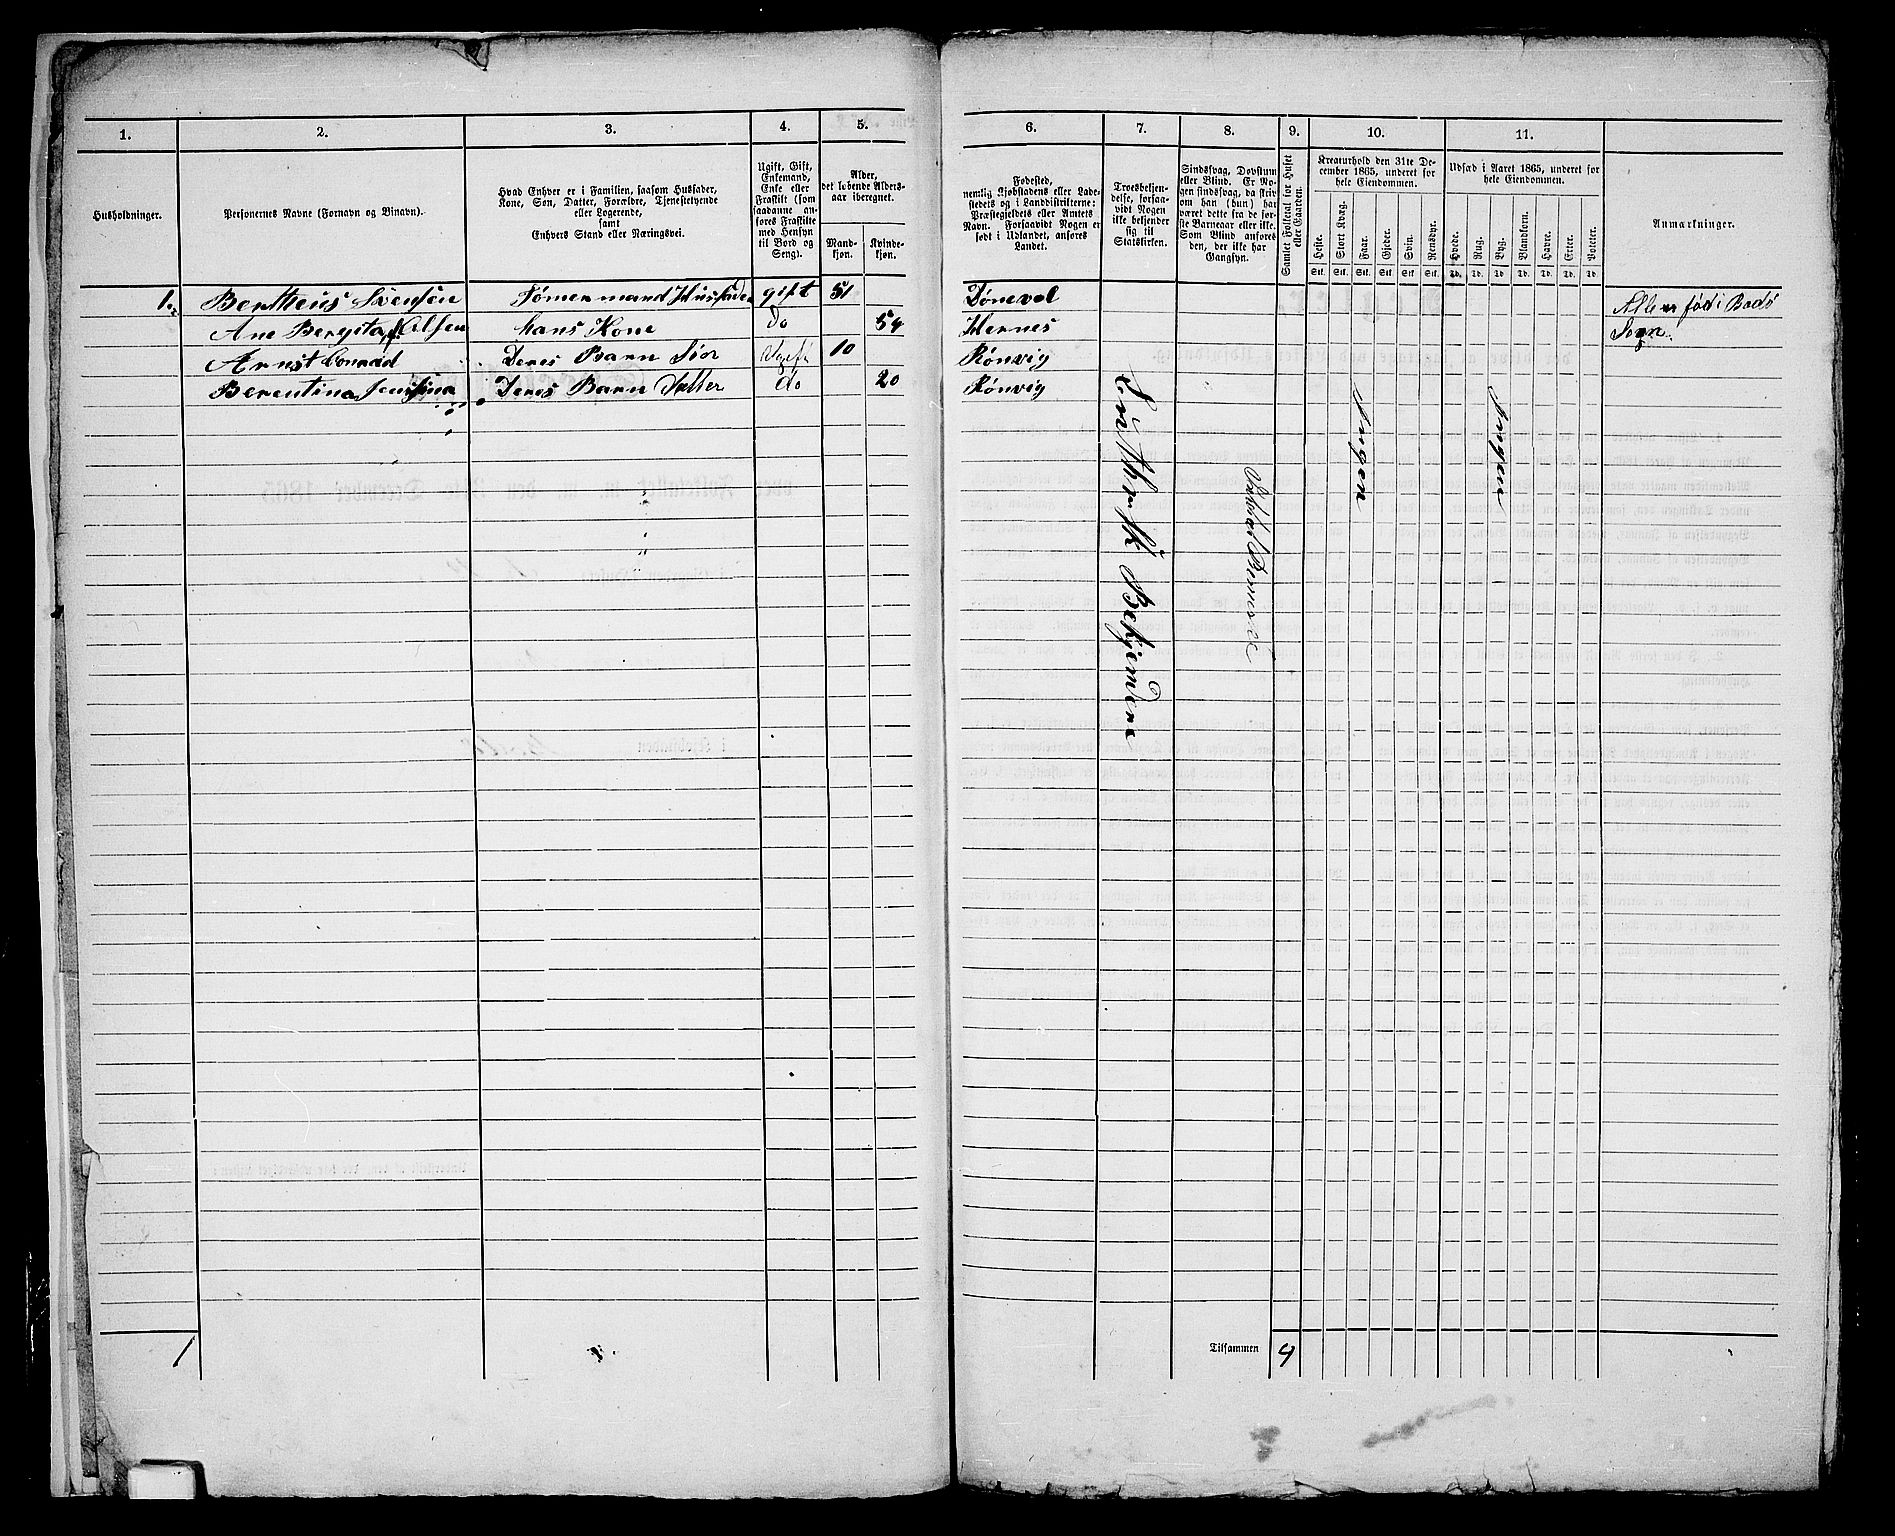 1.
2.
3.
4.
5.
6.
7.
8.
9.
10.
11.
Husholdninger.
Personernes Navne (Fornavn og Binavn).
Hvad Enhver er i Familien, saasom Husfader,
Kone, Søn, Datter, Forældre, Tjenestetyende
eller Logerende,
samt
Enhvers Stand eller Næringsvei.
Ugift, Gift,
Enkemand,
Enke eller
Fraskilt (som
saadanne an-
føres Fraskilte
med Hensyn
til Bord og
Seng).
Alder,
det løbende Alders-
aar iberegnet.
Mand-
kjøn.
Kvinde-
kjøn.
Fødested,
nemlig Kjøbstadens eller Lade-
stedets og i Landdistrikterne:
Præstegjeldets eller Amtets
Navn. Forsaavidt Nogen er
født i Udlandet, anføres
Landet.
Troesbekjen-
delse, forsaa-
vidt Nogen
ikke bekjender
sig til
Statskirken.
Sindssvag, Døvstum
eller Blind. Er No-
gen sindssvag, da skriv
om han (hun) har
været dette fra de før-
ste Barneaar eller ikke.
Som Blind anføres
den, der ikke har
Gangsyn.
Samlet Folketal for Huset
eller Gaarden.
Kreaturhold den 31te De-
cember 1865, underet for
hele Eiendommen.
Heste.
Stort Kvæg.
Faar.
Gjeder.
Svin.
Rensdyr.
Stk. Stk. Stk. Stk. Stk. Stk.
Udsæd i Aaret 1865, underet for
hele Eiendommen.
Hvede.
Rug.
Byg.
Blandkorn.
Havre.
Erter.
Poteter.
Td. Td. Td. Td. Td. Td. Td.
Anmærkninger.
1. Berttheus Svensen Tømermand Husfader gift 51 Alle er fød i Bodø
Ane Bergita Olsen hans Kone do 54 Hernes Sogn.
Arnst Conrad Deres Barn Søn 10 Rønvig
Berentina Deres Barn Datter do 20 Rønvig
Bekjendere
Ingen
Ingen
1
Tilsammen 4